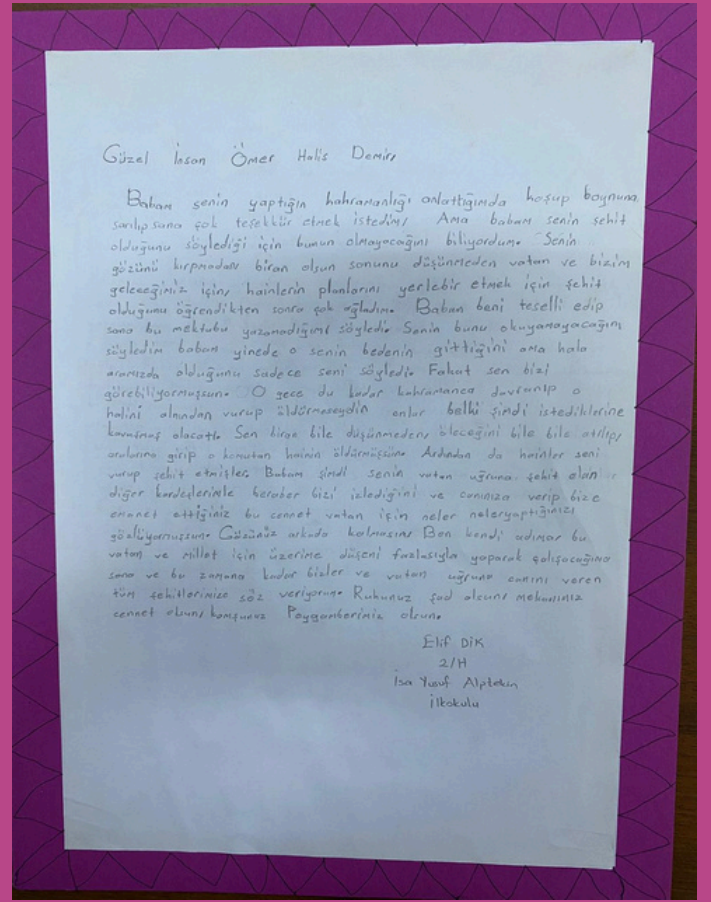 Güzel İnsan Ömer Halis Demir,
Babam senin yaptığın kahramanlığı anlattığımda koşup boynuna
sarılıp sana çok teşekkür etmek istedim, Ama babam senin şehit
olduğunu söylediği için bunun olmayacağını biliyordum. Senin
gözünü kırpmadan, biran olsun sonunu düşünmeden vatan ve bizim
geleceğimiz için, hainlerin planlarını yerlebir etmek için şehit
olduğunu öğrendikten sonra çok ağladım. Baban beni teselli edip
sana bu mektubu yazamadığımı söyledi. Senin bunu okuyamayacağını
söyledim babam yinede o senin bedenin gittiğini ama hala
aramızda olduğunu sadece seni söyledi. Fakat sen bizi
görebiliyormuşsun. O gece bu kadar kahramanca davranıp o
halini alnından vurup öldürmeseydin onlar belki şimdi istediklerine
kavuşmuş olacattı. Sen biran bile düşünmeden, öleceğini bile bile atılıp,
aralarına girip o komutan hainin öldürmüşsün. Ardından da hainler seni
vurup şehit etmişler. Babam şimdi senin vatan uğruna şehit olan
diğer kardeşlerimle beraber bizi izlediğini ve canınıza verip bize
emanet ettiğiniz bu cennet vatan için neler neleryaptığımızı
gözlüyormuşsun. Gözünüz arkada kalmasın, Ben kendi adıma, bu
vatan ve Millet için üzerime düşeni fazlasıyla yaparak çalışacağıma
sana ve bu zamana kadar bizler ve vatan uğruna canını veren
tüm şehitlerimize söz veriyorum. Ruhunuz şad olsun, mekanınız
cennet olsun, komşunuz Peygamberimiz olsun.
Elif DİK
2/H
İsa Yusuf Alptekin
İlkokulu